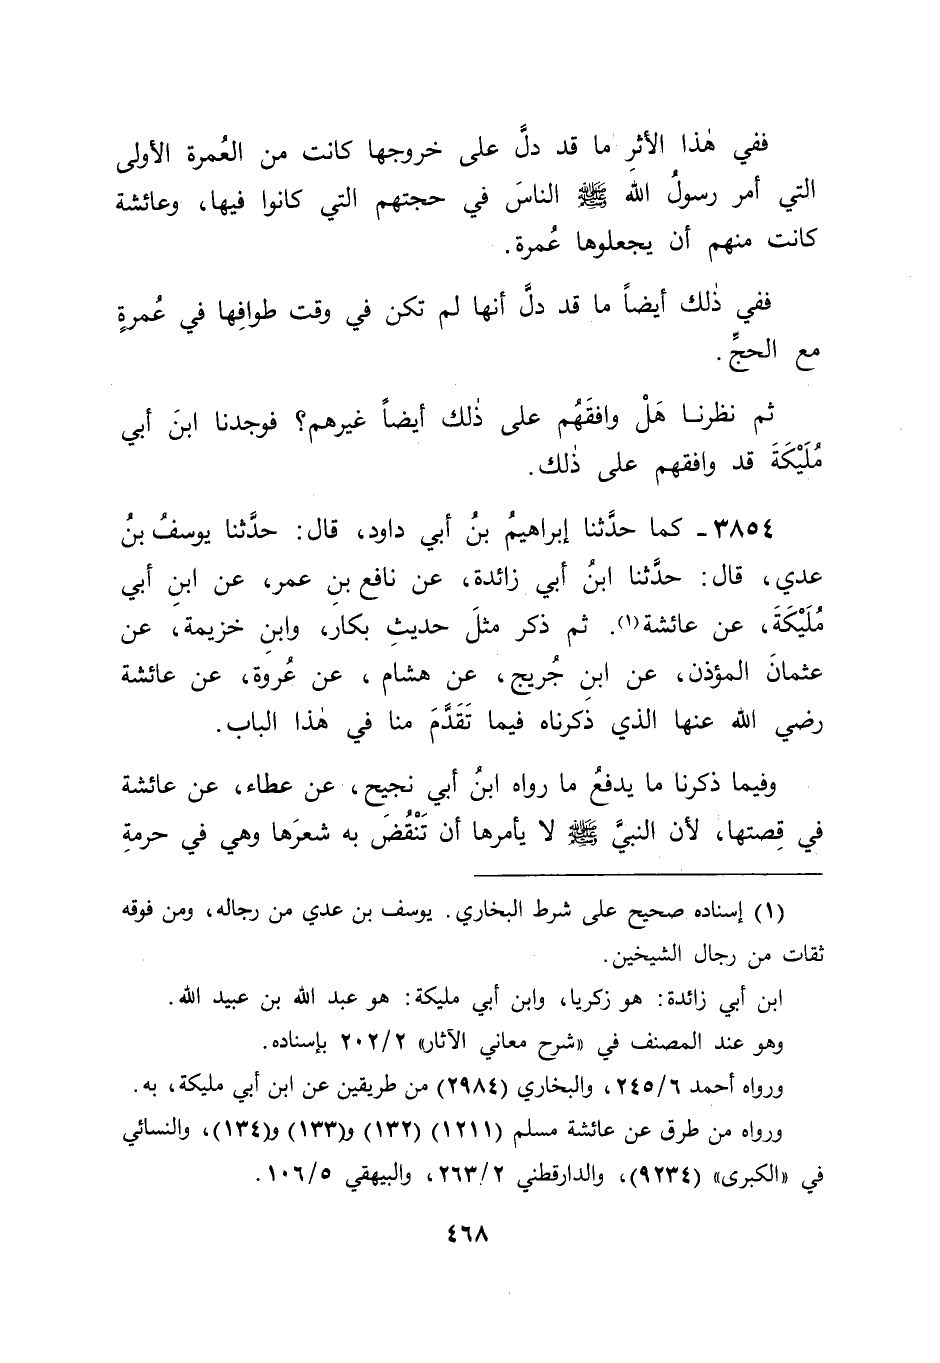 ففي هٰذا الأثرِ ما قد دلَّ على خروجها كانت من العُمرة الأولى
التي أمر رسولُ الله ﷺ الناسَ في حجتهم التي كانوا فيها، وعائشة
كانت منهم أن يجعلوها عُمرة.
ففي ذٰلك أيضاً ما قد دلَّ أنها لم تكن في وقت طوافِها في عُمرةٍ
مع الحجِّ.
ثم نظرنا هَلْ وافقَهُم على ذٰلك أيضاً غيرهم؟ فوجدنا ابنَ أبي
مُلَيْكَةَ قد وافقهم على ذٰلك.
٣٨٥٤ ـ كما حدَّثنا إبراهيمُ بنُ أبي داود، قال: حدَّثنا يوسفُ بنُ
عدي، قال: حدَّثنا ابنُ أبي زائدة، عن نافع بنِ عمر، عن ابنِ أبي
مُلَيْكَةَ، عن عائشة(١). ثم ذكر مثلَ حديثِ بكار، وابنِ خزيمة، عن
عثمانَ المؤذن، عن ابنِ جُريج، عن هشام، عن عُروة، عن عائشة
رضي الله عنها الذي ذكرناه فيما تَقَدَّمَ منا في هٰذا الباب.
وفيما ذكرنا ما يدفعُ ما رواه ابنُ أبي نجيح، عن عطاء، عن عائشة
في قِصتها، لأن النبيَّ ﷺ لا يأمرها أن تَنْقُضَ به شعرَها وهي في حرمةِ
(١) إسناده صحيح على شرط البخاري. يوسف بن عدي من رجاله، ومن فوقه
ثقات من رجال الشيخين.
ابن أبي زائدة: هو زكريا، وابن أبي مليكة: هو عبد الله بن عبيد الله.
وهو عند المصنف في «شرح معاني الآثار» ٢٠٢/٢ بإسناده.
ورواه أحمد ٢٤٥/٦، والبخاري (٢٩٨٤) من طريقين عن ابن أبي مليكة، به.
ورواه من طرق عن عائشة مسلم (١٢١١) (١٣٢) و(١٣٣) و(١٣٤)، والنسائي
في «الكبرى» (٩٢٣٤)، والدارقطني ٢٦٣/٢، والبيهقي ١٠٦/٥.
٤٦٨